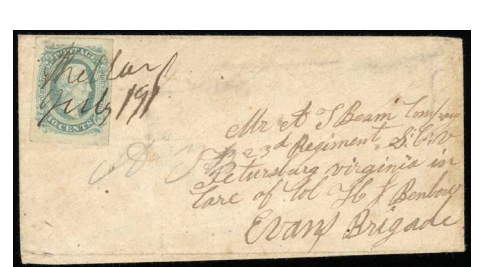 Shelby
July 19
TEN CENTS
Mr A J Beam Company
F 23d Regiment, S.C.V
Petersburg virginia in
Care of Col H L Benbow
Evans Brigade